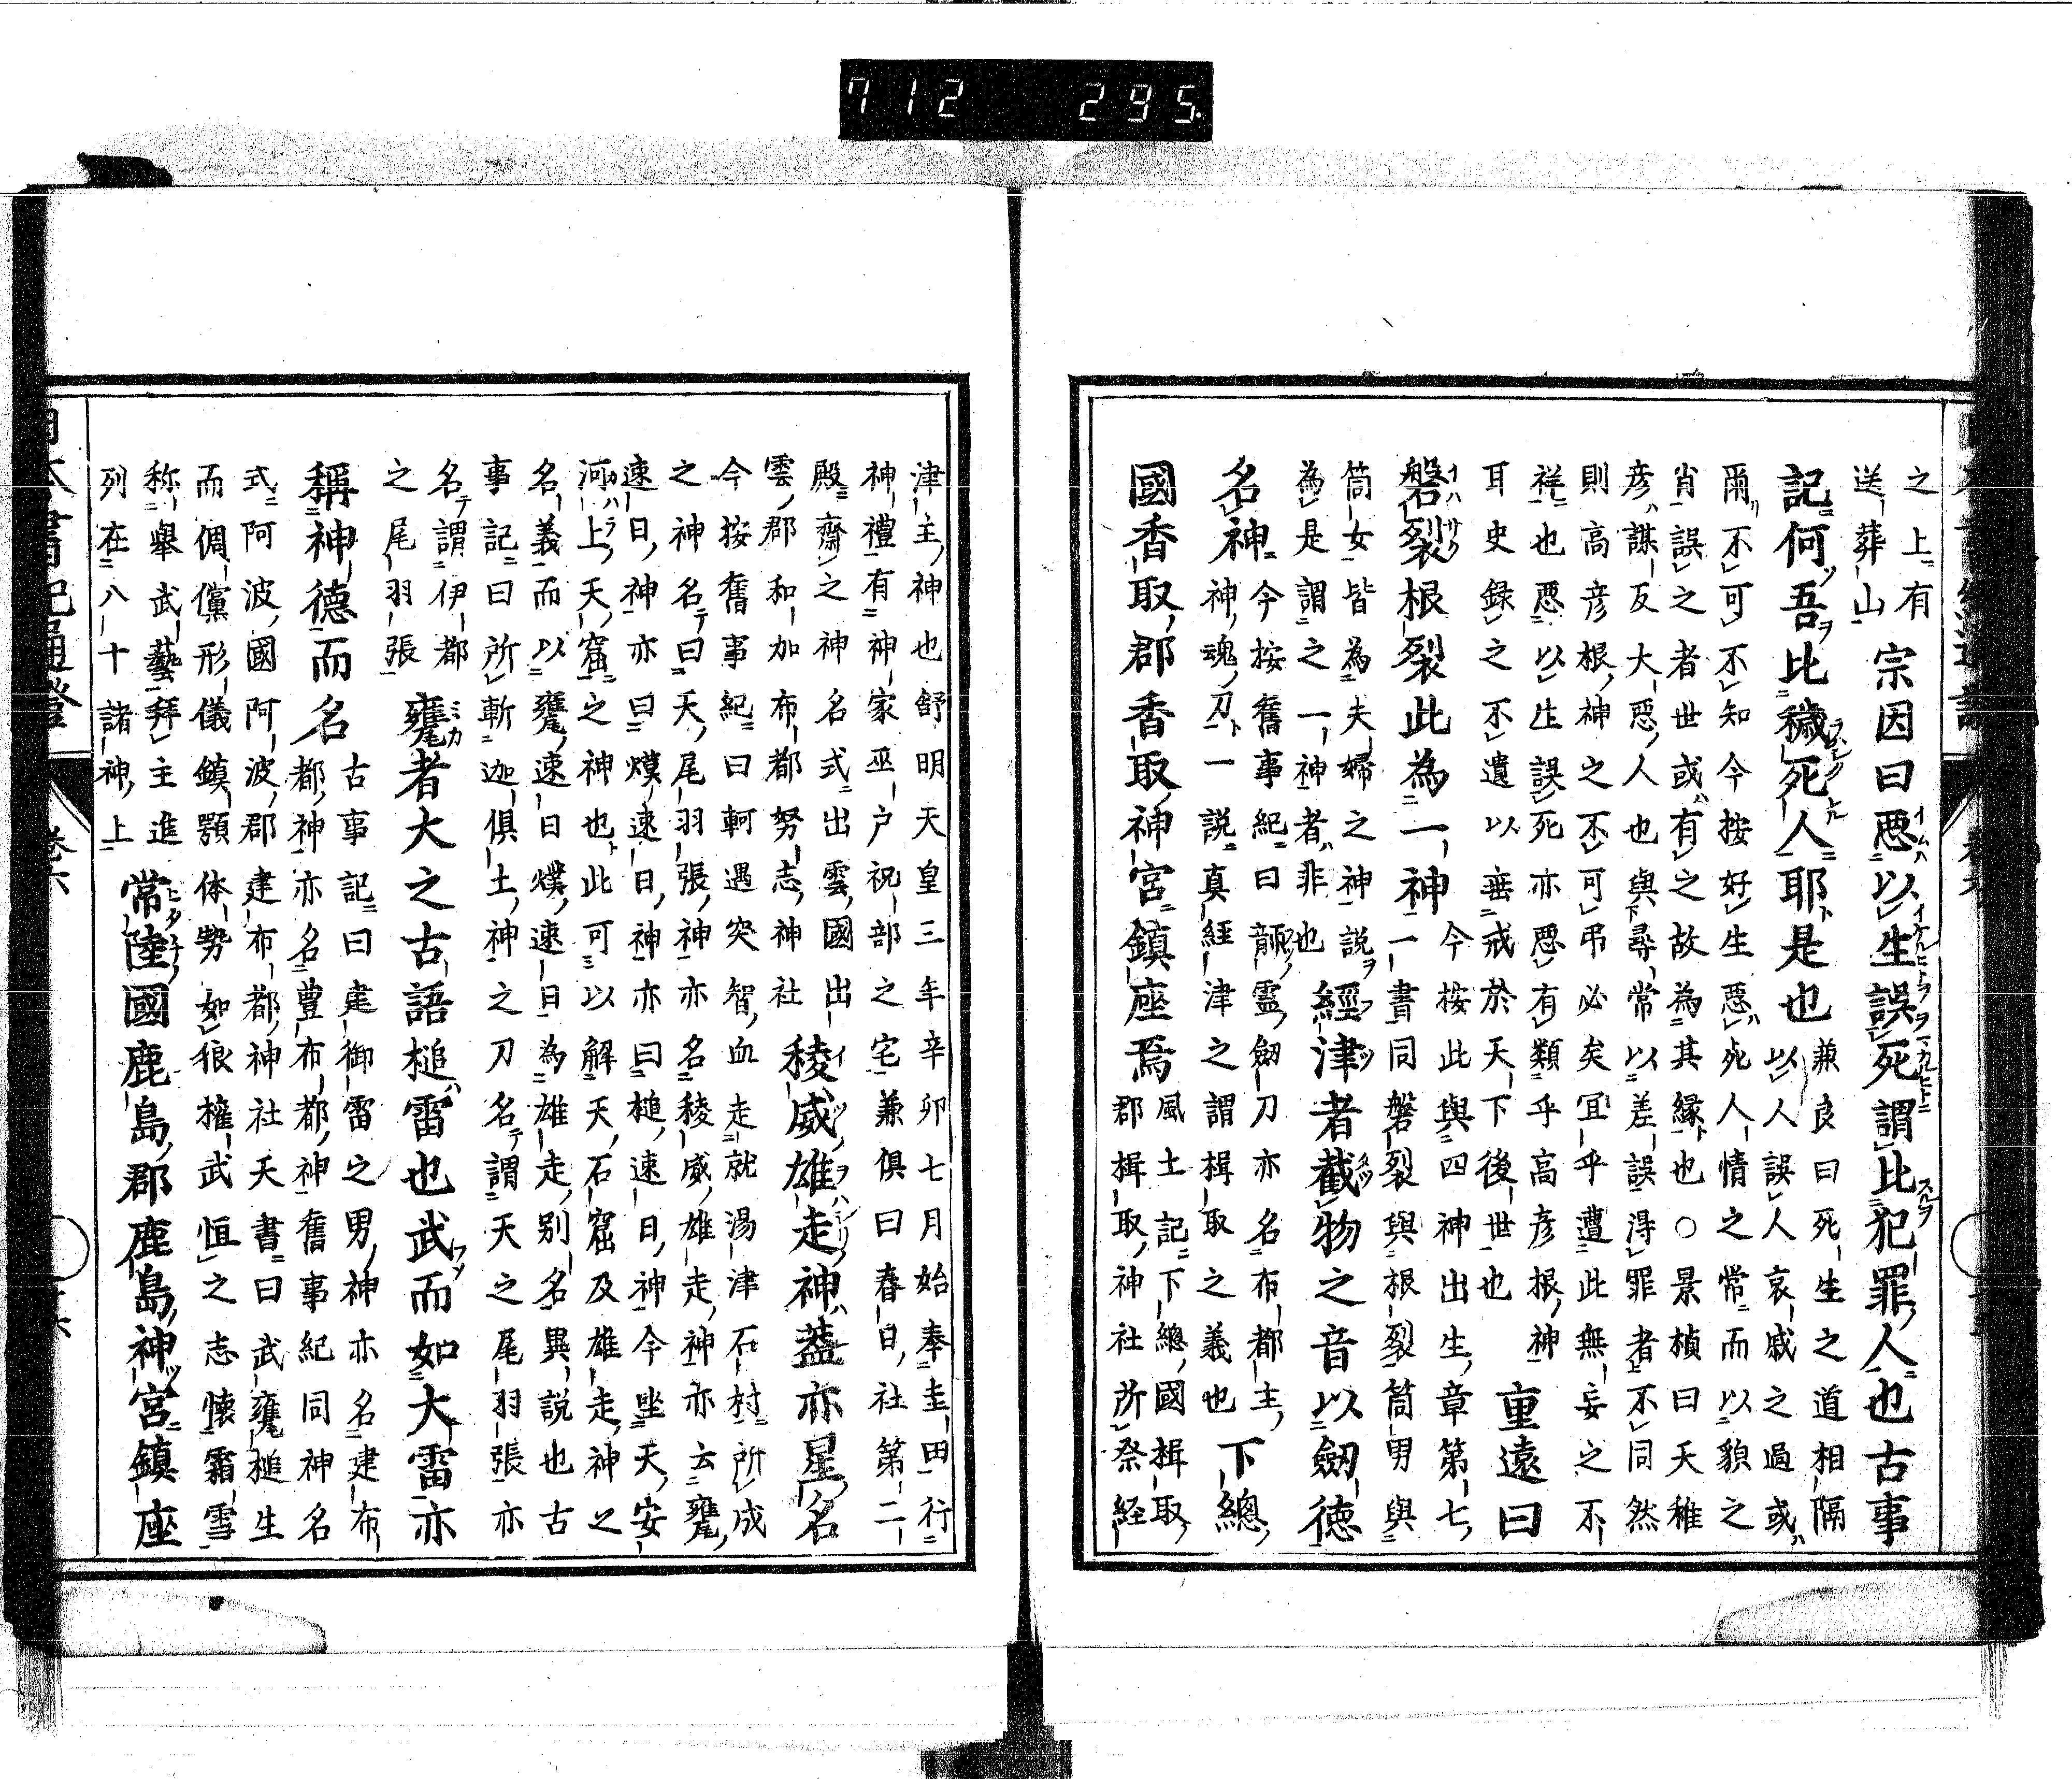 712 295.
之上有
送葬山 宗因曰惡以生誤死謂比犯罪人也古事
記何吾比穢死人耶是也 兼良曰死生之道相隔
以人誤人哀戚之過或
爾不可不知今按好生惡死人情之常而以貌之
肖誤之者世或有之故為其縁也○景楨曰天稚
彦謀反大惡人也與尋常以差誤淂罪者不同然
則高彦根神之不可弔必矣冝乎遭此無妄之不
祥也惡以生誤死亦惡有類乎高彦根神
耳史録之不遺以垂戒於天下後世也 重遠曰
磐裂根裂此為一神 今按此與四神出生章第七
一書同磐裂與根裂筒男與
筒女皆為夫婦之神說
為是謂之一神者非也 經津者截物之音以劔徳
名神 今按舊事紀曰 霊劔刀亦名布都主
神魂刀一説真經津之謂楫取之義也 下總
國香取郡香取神宮鎮座焉 風土記下總國楫取
郡楫取神社所祭経
津主神也舒明天皇三年辛卯七月始奉圭田行
神禮有神家巫戸祝部之宅兼俱曰春日社第二
殿齋之神名式出雲國出
雲郡和加布都努志神社 稜威雄走神蓋亦星名
今按舊事紀曰軻遇突智血走就湯津石村所成
之神名曰天尾羽張神亦名稜威雄走神亦云甕
速日神亦曰熯速日神亦曰槌速日神今坐天安
河上天窟之神也此可以解天石窟及雄走神之
名義而以甕速日熯速日為雄走別名異説也古
事記曰所斬迦倶土神之刀名謂天之尾羽張亦
名謂伊都
之尾羽張 甕者大之古語槌雷也武而如大雷亦
稱神德而名 古事記曰建御雷之男神亦名建布
都神亦名豊布都神舊事紀同神名
式阿波國阿波郡建布都神社天書曰武甕槌生
而倜儻形儀鎮顎体勢如狼權武恒之志懐霜雪
称舉武藝拜主進
列在八十諸神上 常陸國鹿島郡鹿島神宮鎮座
日本書紀通證 卷六